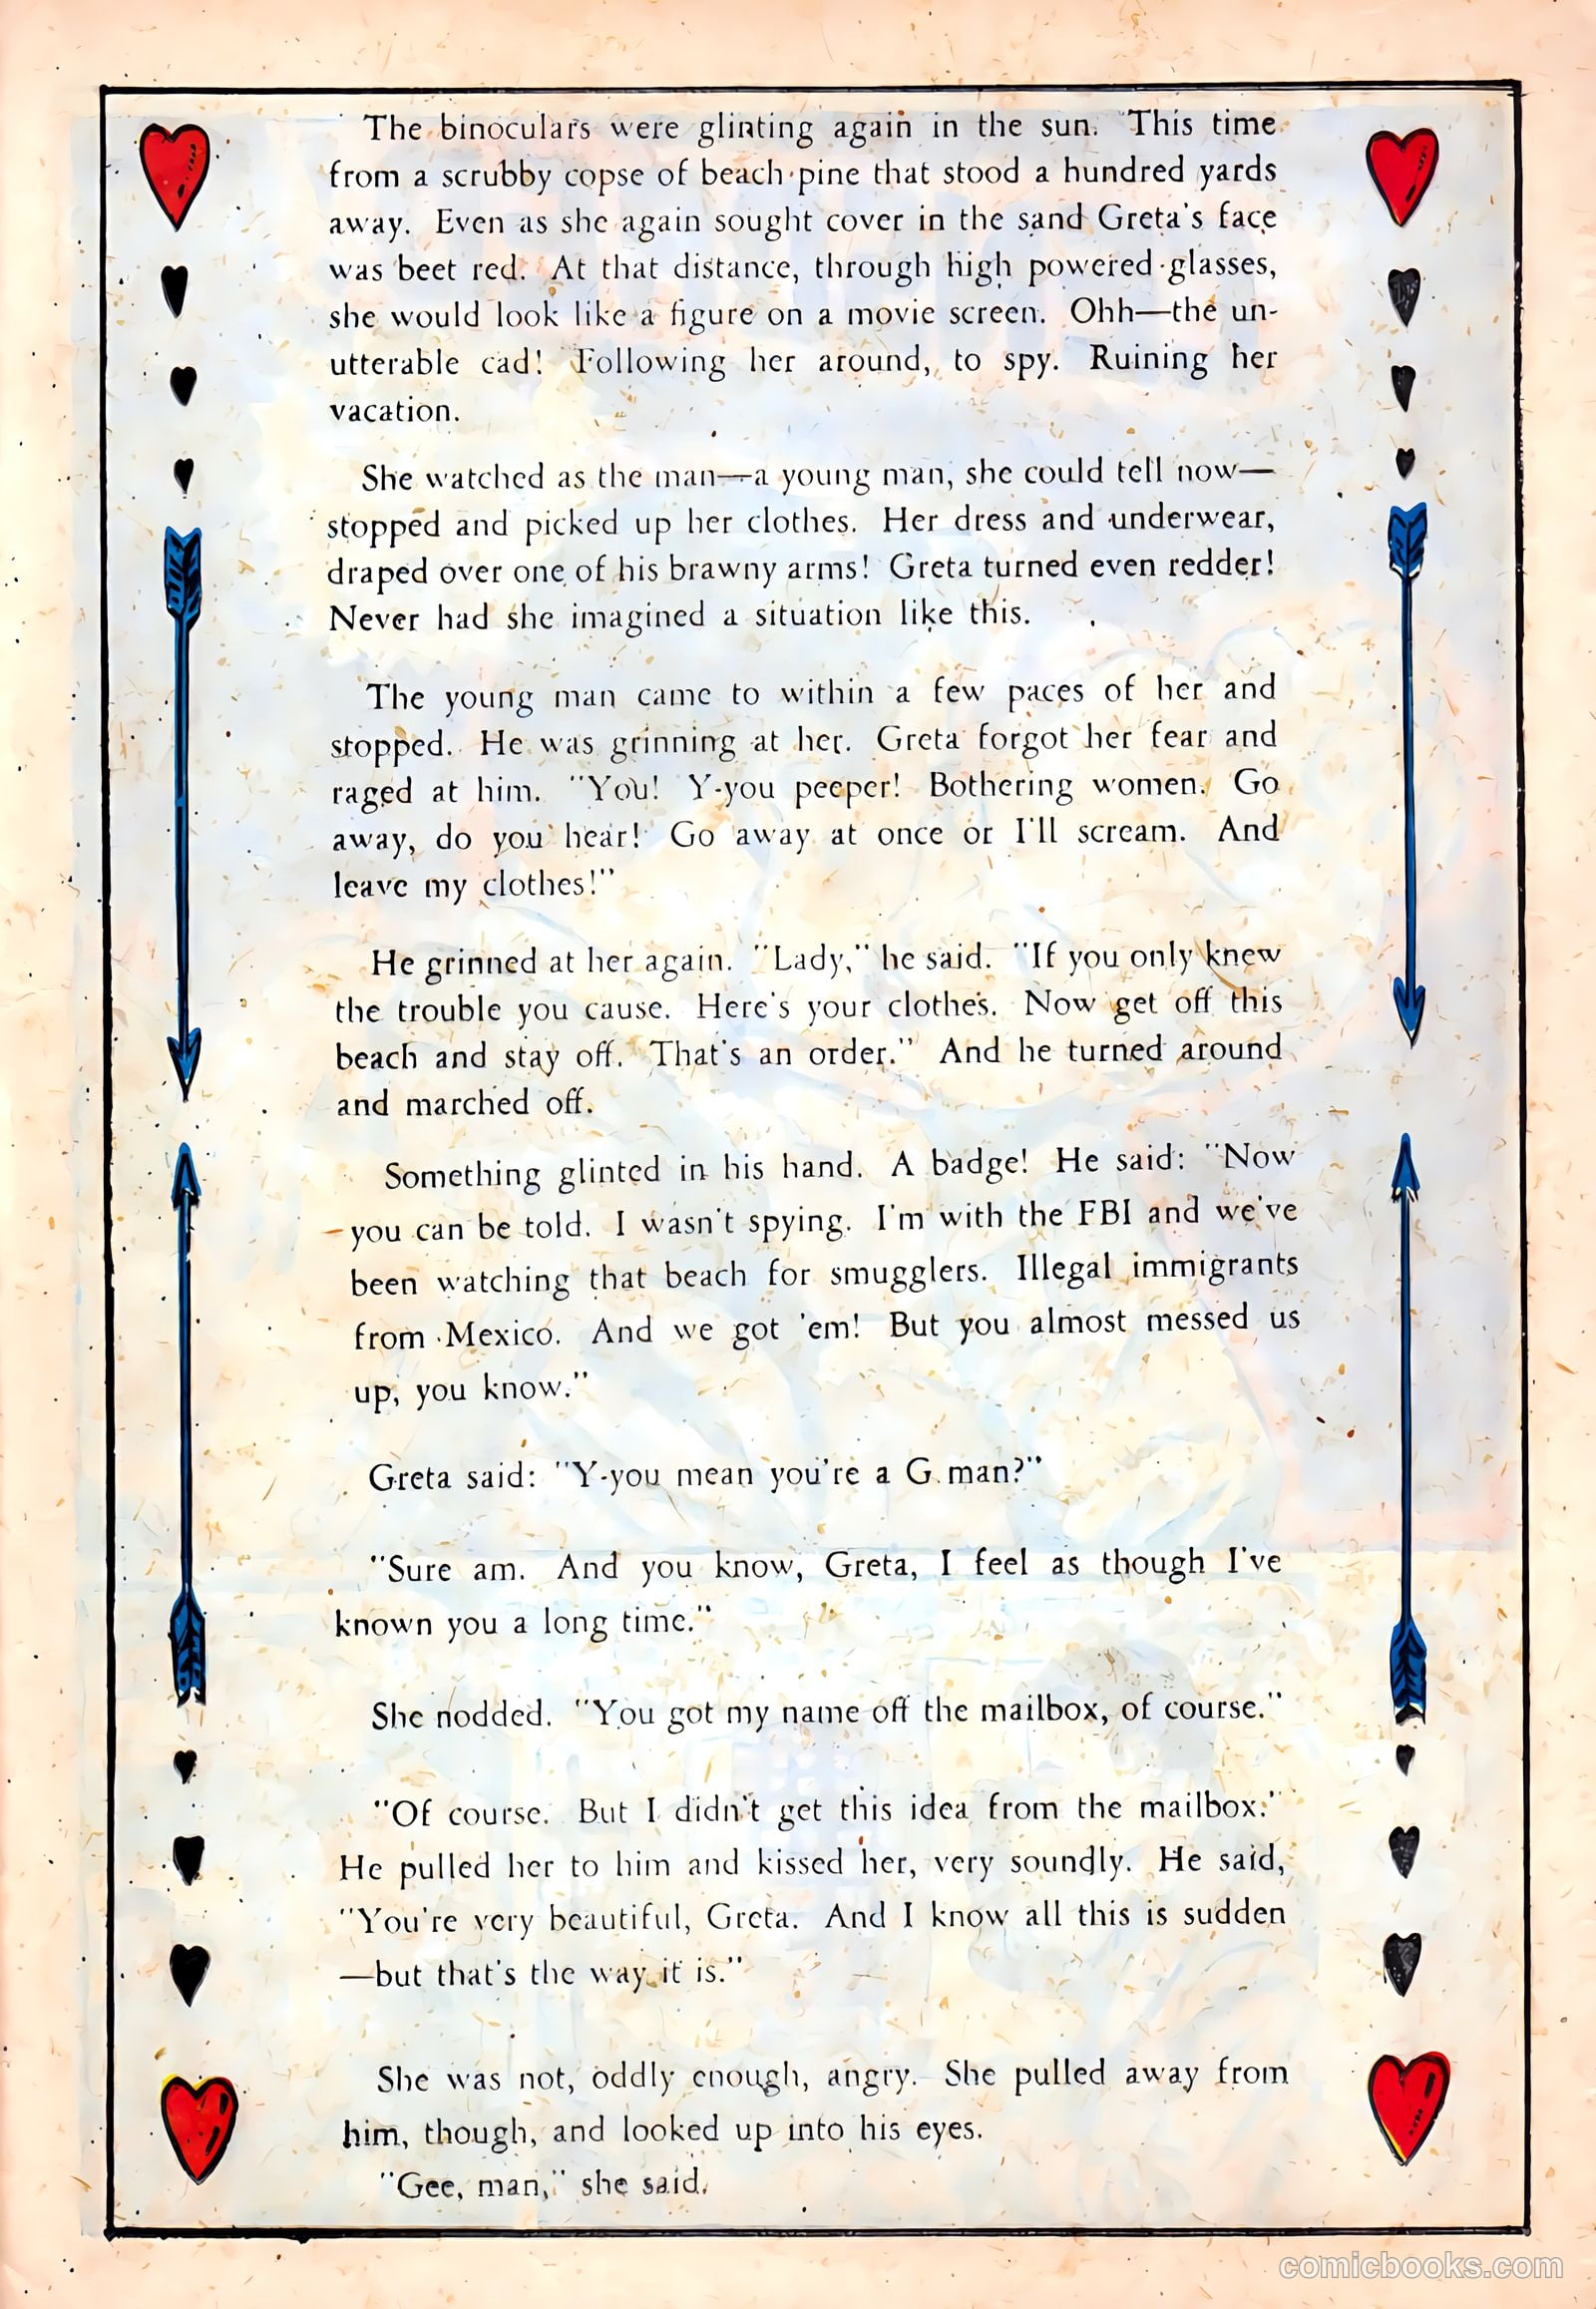 The binoculars were glinting again in the sun. This time
from a scrubby copse of beach pine that stood a hundred yards
away. Even as she again sought cover in the sand Greta's face
was beet red. At that distance, through high powered glasses,
she would look like a figure on a movie screen. Ohh—the un-
utterable cad! Following her around, to spy. Ruining her
vacation.
She watched as the man—a young man, she could tell now—
stopped and picked up her clothes. Her dress and underwear,
draped over one of his brawny arms! Greta turned even redder!
Never had she imagined a situation like this.
The young man came to within a few paces of her and
stopped. He was grinning at her. Greta forgot her fear and
raged at him. "You! Y-you peeper! Bothering women. Go
away, do you hear! Go away at once or I'll scream. And
leave my clothes!"
He grinned at her again. "Lady," he said. "If you only knew
the trouble you cause. Here's your clothes. Now get off this
beach and stay off. That's an order." And he turned around
and marched off.
Something glinted in his hand. A badge! He said: "Now
you can be told. I wasn't spying. I'm with the FBI and we've
been watching that beach for smugglers. Illegal immigrants
from Mexico. And we got 'em! But you almost messed us
up, you know."
Greta said: "Y-you mean you're a G man?"
"Sure am. And you know, Greta, I feel as though I've
known you a long time."
She nodded. "You got my name off the mailbox, of course."
"Of course. But I didn't get this idea from the mailbox."
He pulled her to him and kissed her, very soundly. He said,
"You're very beautiful, Greta. And I know all this is sudden
—but that's the way it is."
She was not, oddly enough, angry. She pulled away from
him, though, and looked up into his eyes.
"Gee, man," she said.
comicbooks.com